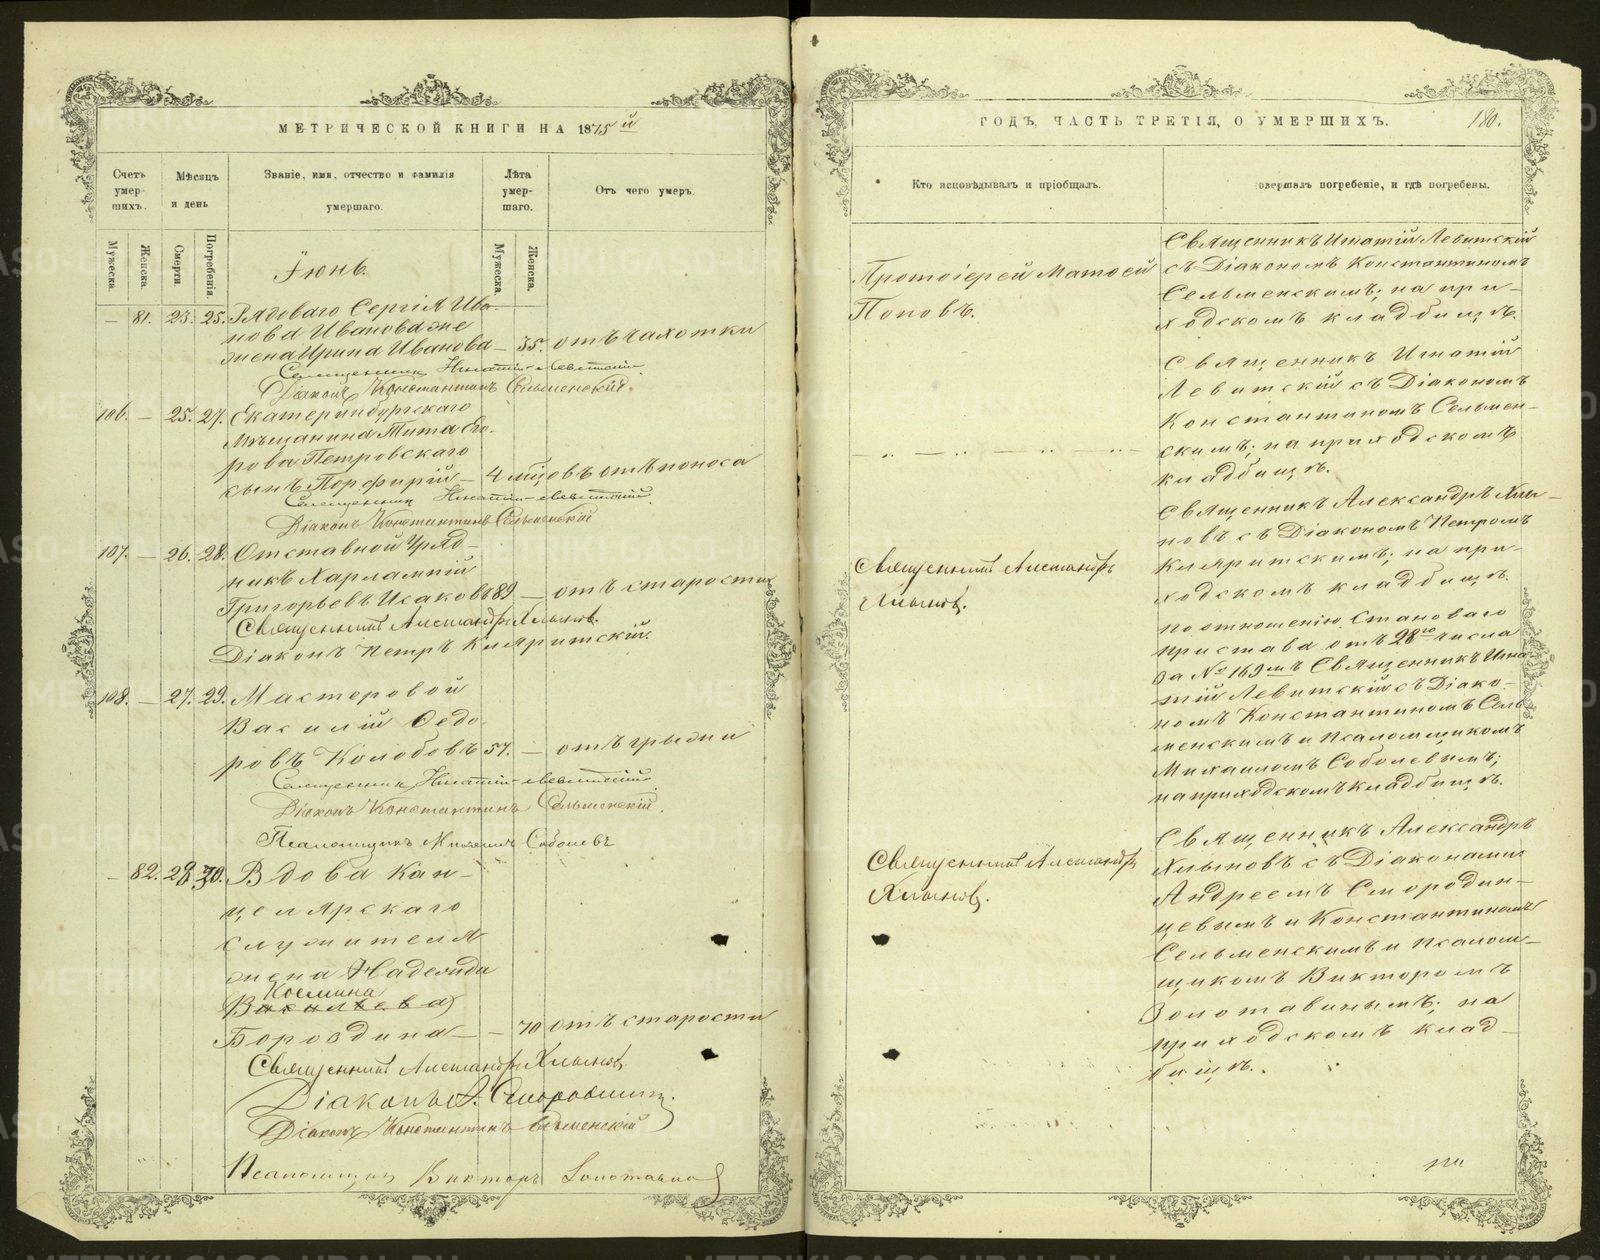 МЕТРИЧЕСКОЙ КНИГИ НА 1875й
Счетъ умер- шихъ.
Мѣсяцъ и день
Званіе, имя, отчество и фамилія умершаго.
Лѣта умер- шаго.
Отъ чего умеръ.
Мужеска.
Женска.
Смерти.
Погребенія.
Мужеска.
Женска.
Іюнь.
— 81. 23. 25. Рядоваго Сергія Ива-
нова Иванова же
жена Ирина Иванова — 35. отъ чахотки
Священникъ Игнатій Левитскій
Діаконъ Константинъ Сельменскій.
106. — 25. 27. Екатеринбургскаго
Мѣщанина Тита Его-
рова Петровскаго
сынъ Порфирій — 4 мѣцовъ отъ поноса
Священникъ Игнатій Левитскій.
Діаконъ Константинъ Сельменскій
107. — 26. 28. Отставной Уряд-
никъ Харлампій
Григорьевъ Исаковъ 89 — отъ старости
Священникъ Александръ Хлыновъ.
Діаконъ Петръ Киляритскій.
108. — 27. 29. Мастеровой
Василій Ѳедо-
ровъ Колобовъ 57. — отъ грыжи
Священникъ Игнатій Левитскій.
Діаконъ Константинъ Сельменскій.
Псаломщикъ Михаилъ Соболевъ
— 82. 28. 30. Вдова Кан-
целярскаго
служителя
жена Надежда
Космина
Васильева
Бороздина — — 70 отъ старости
Священникъ Александръ Хлыновъ
Діаконъ А. Смородинц.
Діаконъ Константинъ Сельменскій
Псаломщикъ Викторъ Золотавинъ
ГОДЪ, ЧАСТЬ ТРЕТІЯ, О УМЕРШИХЪ.
180.
Кто исповѣдывалъ и пріобщалъ.
совершалъ погребеніе, и гдѣ погребены.
Протоіерей Матѳей
Поповъ.
Священникъ Игнатій Левитскій
съ Діакономъ Константиномъ
Сельменскимъ; на при-
ходскомъ кладбищѣ.
Священникъ Игнатій
Левитскій съ Діакономъ
Константиномъ Сельмен-
скимъ; на приходскомъ
кладбищѣ.
Священникъ Александръ
Хлыновъ.
Священникъ Александръ Хлы-
новъ съ Діакономъ Петромъ
Киляритскимъ; на при-
ходскомъ кладбищѣ.
По отношенію Становаго
пристава отъ 28го числа
за № 169мъ Священникъ Игна-
тій Левитскій съ Діако-
номъ Константиномъ Сель-
менскимъ и Псаломщикомъ
Михаиломъ Соболевымъ;
на приходскомъ кладбищѣ.
Священникъ Александръ
Хлыновъ.
Священникъ Александръ
Хлыновъ съ Діаконами
Андреемъ Смородин-
цевымъ и Константиномъ
Сельменскимъ и Псалом-
щикомъ Викторомъ
Золотавинымъ; на
приходскомъ клад-
бищѣ.
METRIKI.GASO-URAL.RU